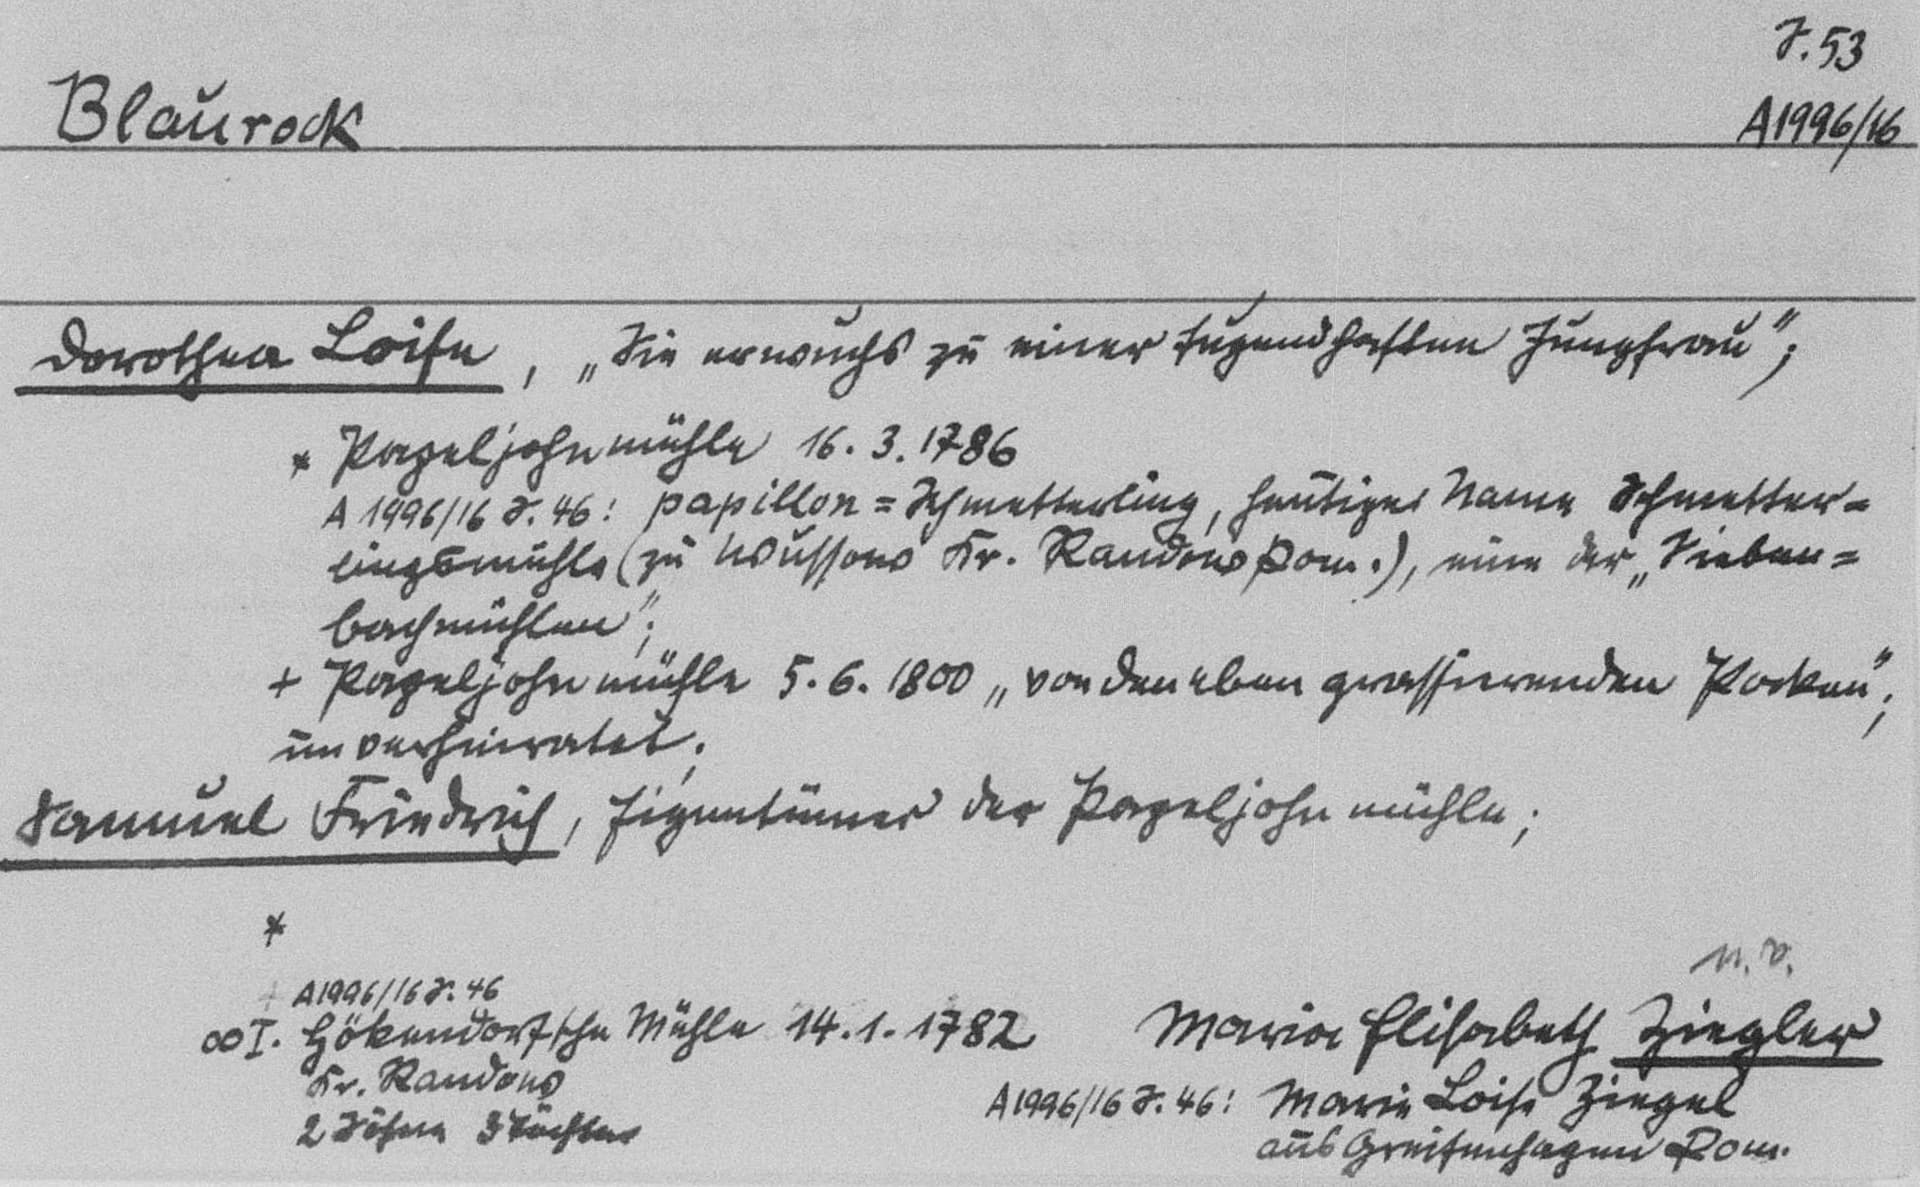 S. 53
Blaurock
A1996/16
Dorothea Loise, „Sie erwuchs zu einer tugendhaften Jungfrau";
* Papeljohnmühle 16. 3. 1786
A 1996/16 S. 46: papillon = Schmetterling, heutiger Name Schmetter=
lingsmühle (zu Wussow Kr. Randow Pom.), eine der „Sieben=
bachmühlen";
+ Papeljohnmühle 5. 6. 1800 „von den eben grassierenden Pocken";
unverheiratet;
Samuel Friedrich, Eigentümer der Papeljohnmühle;
*
n. v.
A1996/16 S. 46
∞ I. Hökendorfsche Mühle 14. 1. 1782 Maria Elisabeth Ziegler
Kr. Randow
A1996/16 S. 46: Marie Loise Ziegel
2 Söhne 3 Töchter
aus Greifenhagen Pom.